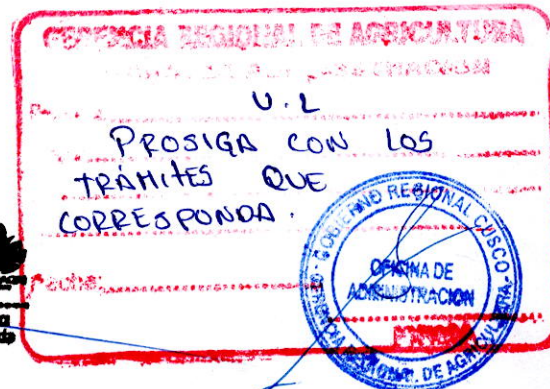 GERENCIA REGIONAL DE AGRICULTURA
U.L
PROSIGA CON LOS
TRÁMITES QUE
CORRESPONDA.
Fecha:
GOBIERNO REGIONAL CUSCO
OFICINA DE
ADMINISTRACION
GERENCIA REGIONAL DE AGRICULTURA